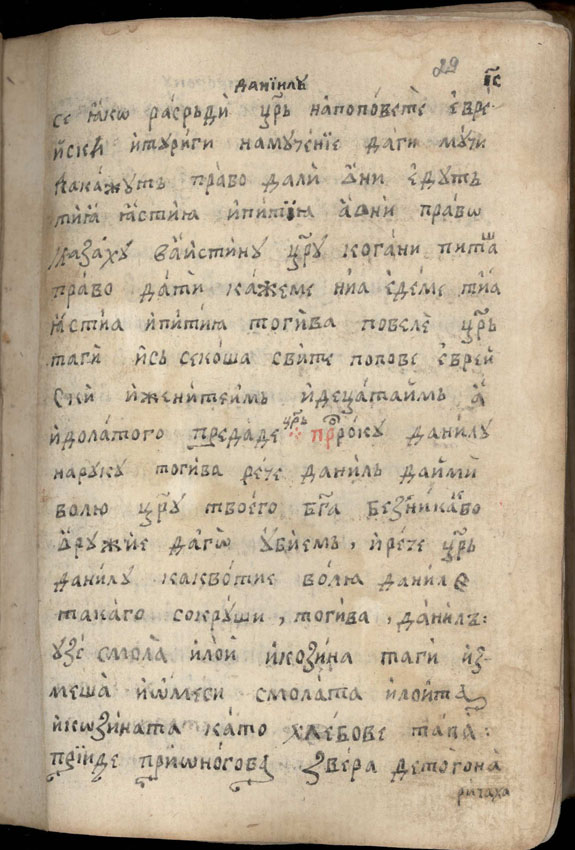 данїилъ 29 
се ꙗко расръди цр҃ь напоповете евре
йски итуриги намученїе даги мучи
дакажутъ право дали ѡни едутъ
тиѧ ꙗстиѧ ипитїѧ аѡни правѡ
казаху ваистину цр҃у когани пита
право дати кажеме ниа едеме тиа
ꙗстиа ипитиѧ тогива повеле цр҃ь
таги исъ секоша свите попове еврей
ски иженитеимъ идецатаимъ а
идолатого предаде цр҃ь прⷪ҇року данилу
наруку тогива рече данилъ даими
волю цр҃у твоего бг҃а безникакво
ѡружие дагѡ убиемъ, ирече цр҃ь
данилу каквотие волѧ данил
такаго сокруши, тогива, данилъ:
узе смола илои икозина таги из
меша иѡмеси смолата илоита
икѡзината като хлебове тава:
прїиде приѡногова звера детогона
ричаха